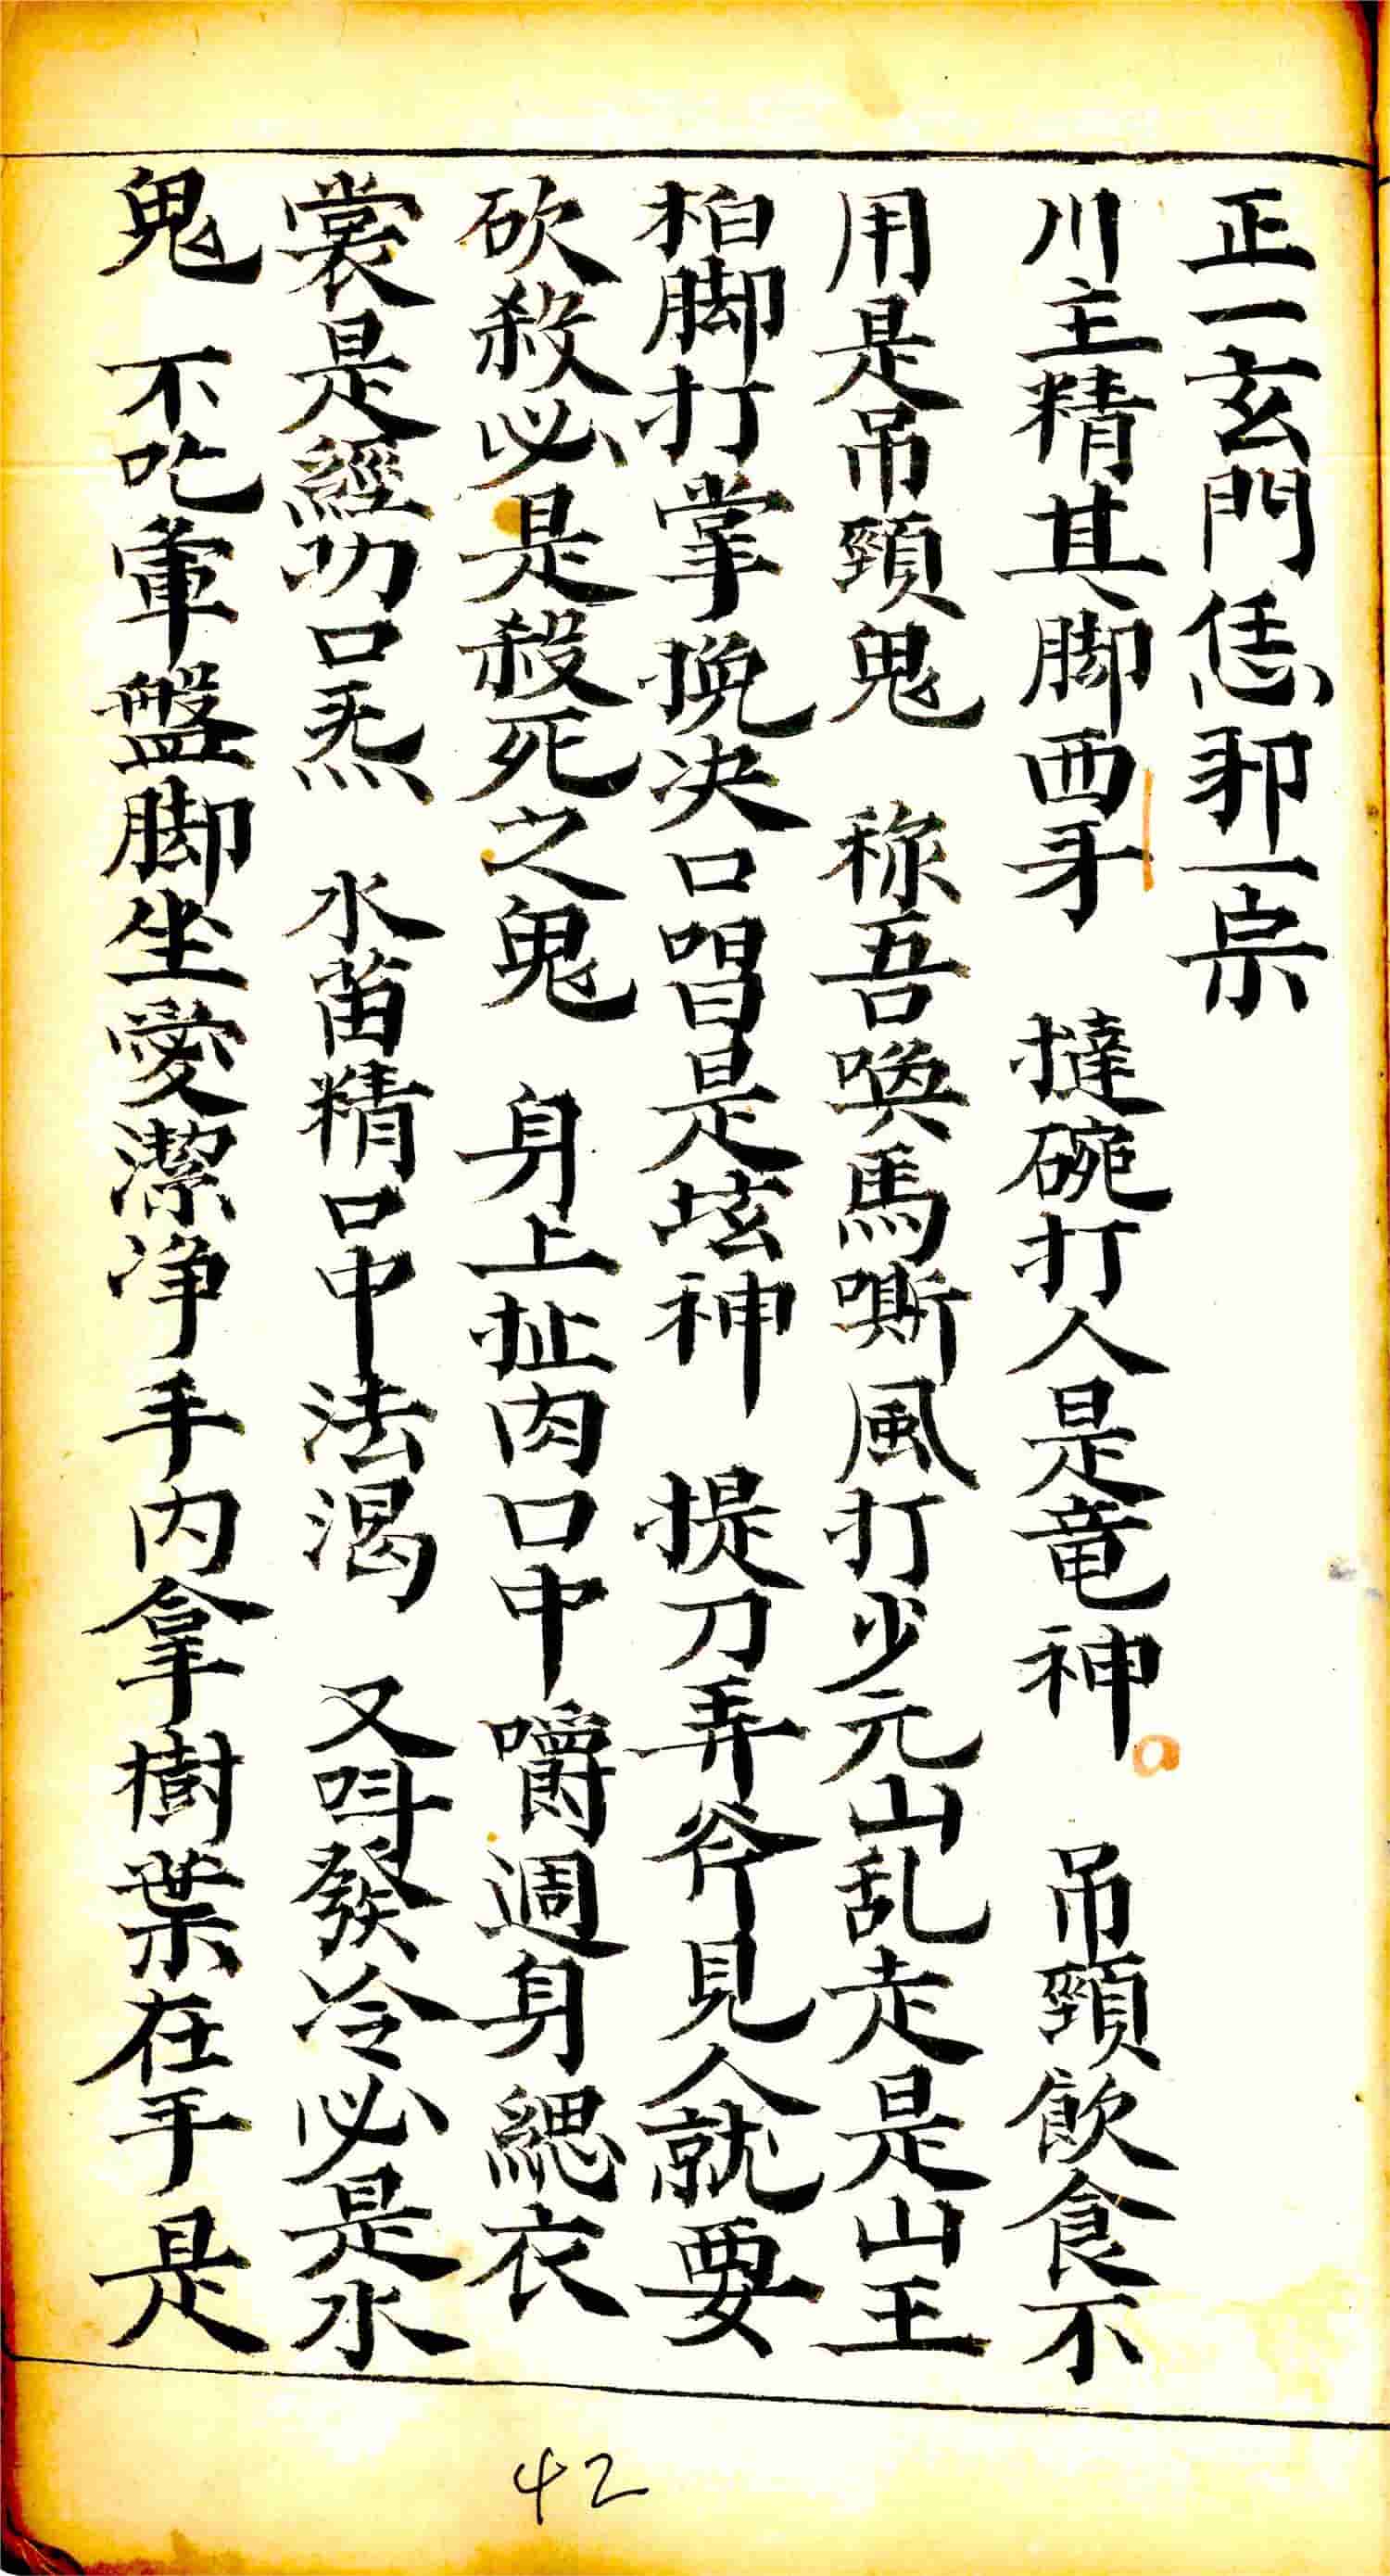 正一玄門恁邪一宗
川主精其脚西牙　撻碗打人是竜神。　吊頸飲食不
用是吊頸鬼　称吾喚馬嘶風打少元山乱走是山王
柏脚打掌挽决口唱是坛神　提刀弄斧見人就要
砍殺必是殺死之鬼　身上扯肉口中嚼週身緦衣
裳是經功口炁　水笛精口中法渴　又呌發冷必是水
鬼　不吃葷盤脚坐愛潔净手内拿樹葉在手是
42